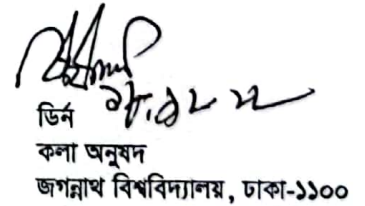 ডিন
কলা অনুষদ
জগন্নাথ বিশ্ববিদ্যালয়, ঢাকা-১১০০